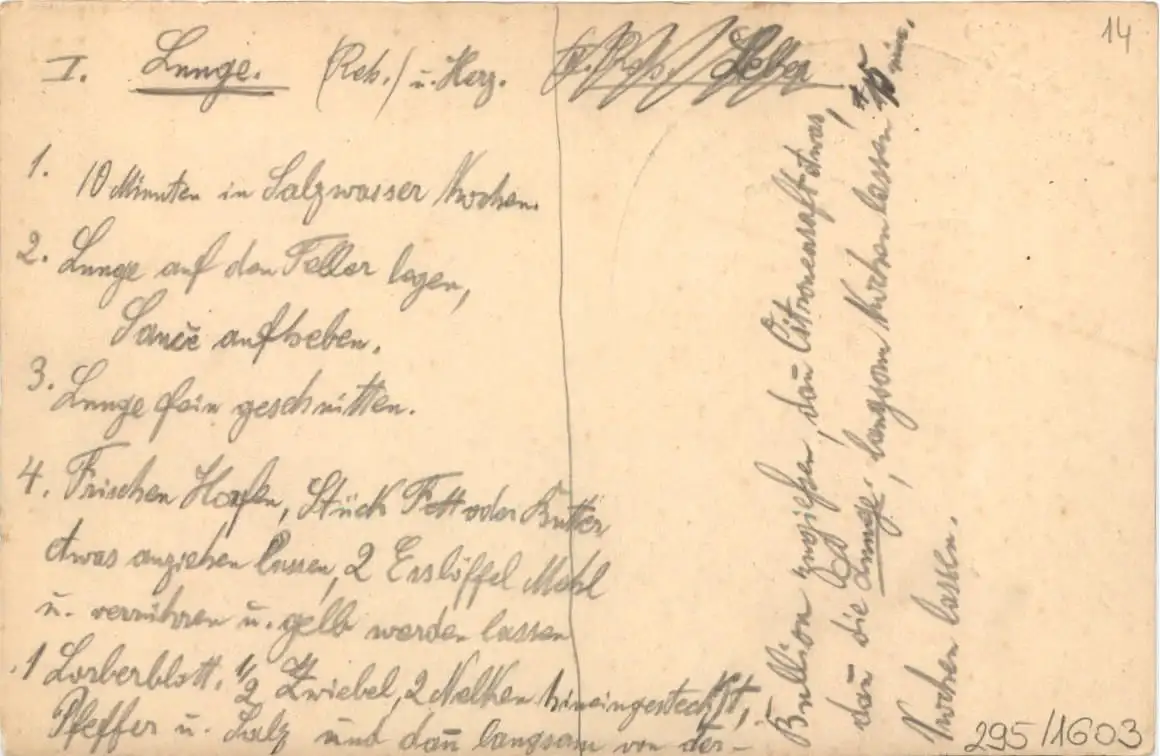 14
I. Lunge. (Reh.) u. Herz.
Leber
1. 10 Minuten in Salzwasser kochen.
2. Lunge auf den Teller legen,
Sauce aufheben.
3. Lunge fein geschnitten.
4. Frischen Hafen, Stück Fett oder Butter
etwas anziehen lassen, 2 Esslöffel Mehl
u. verrühren u. gelb werden lassen
1 Lorberblatt, 1/2 Zwiebel, 2 Nelken hineingesteckt,
Pfeffer u. Salz und dan̄ langsam von der-
Bullion zugießen, dan̄ Citronensaft etwas,
dan̄ die Lunge, langsam kochen lassen 15 min.
kochen lassen.
295/1603